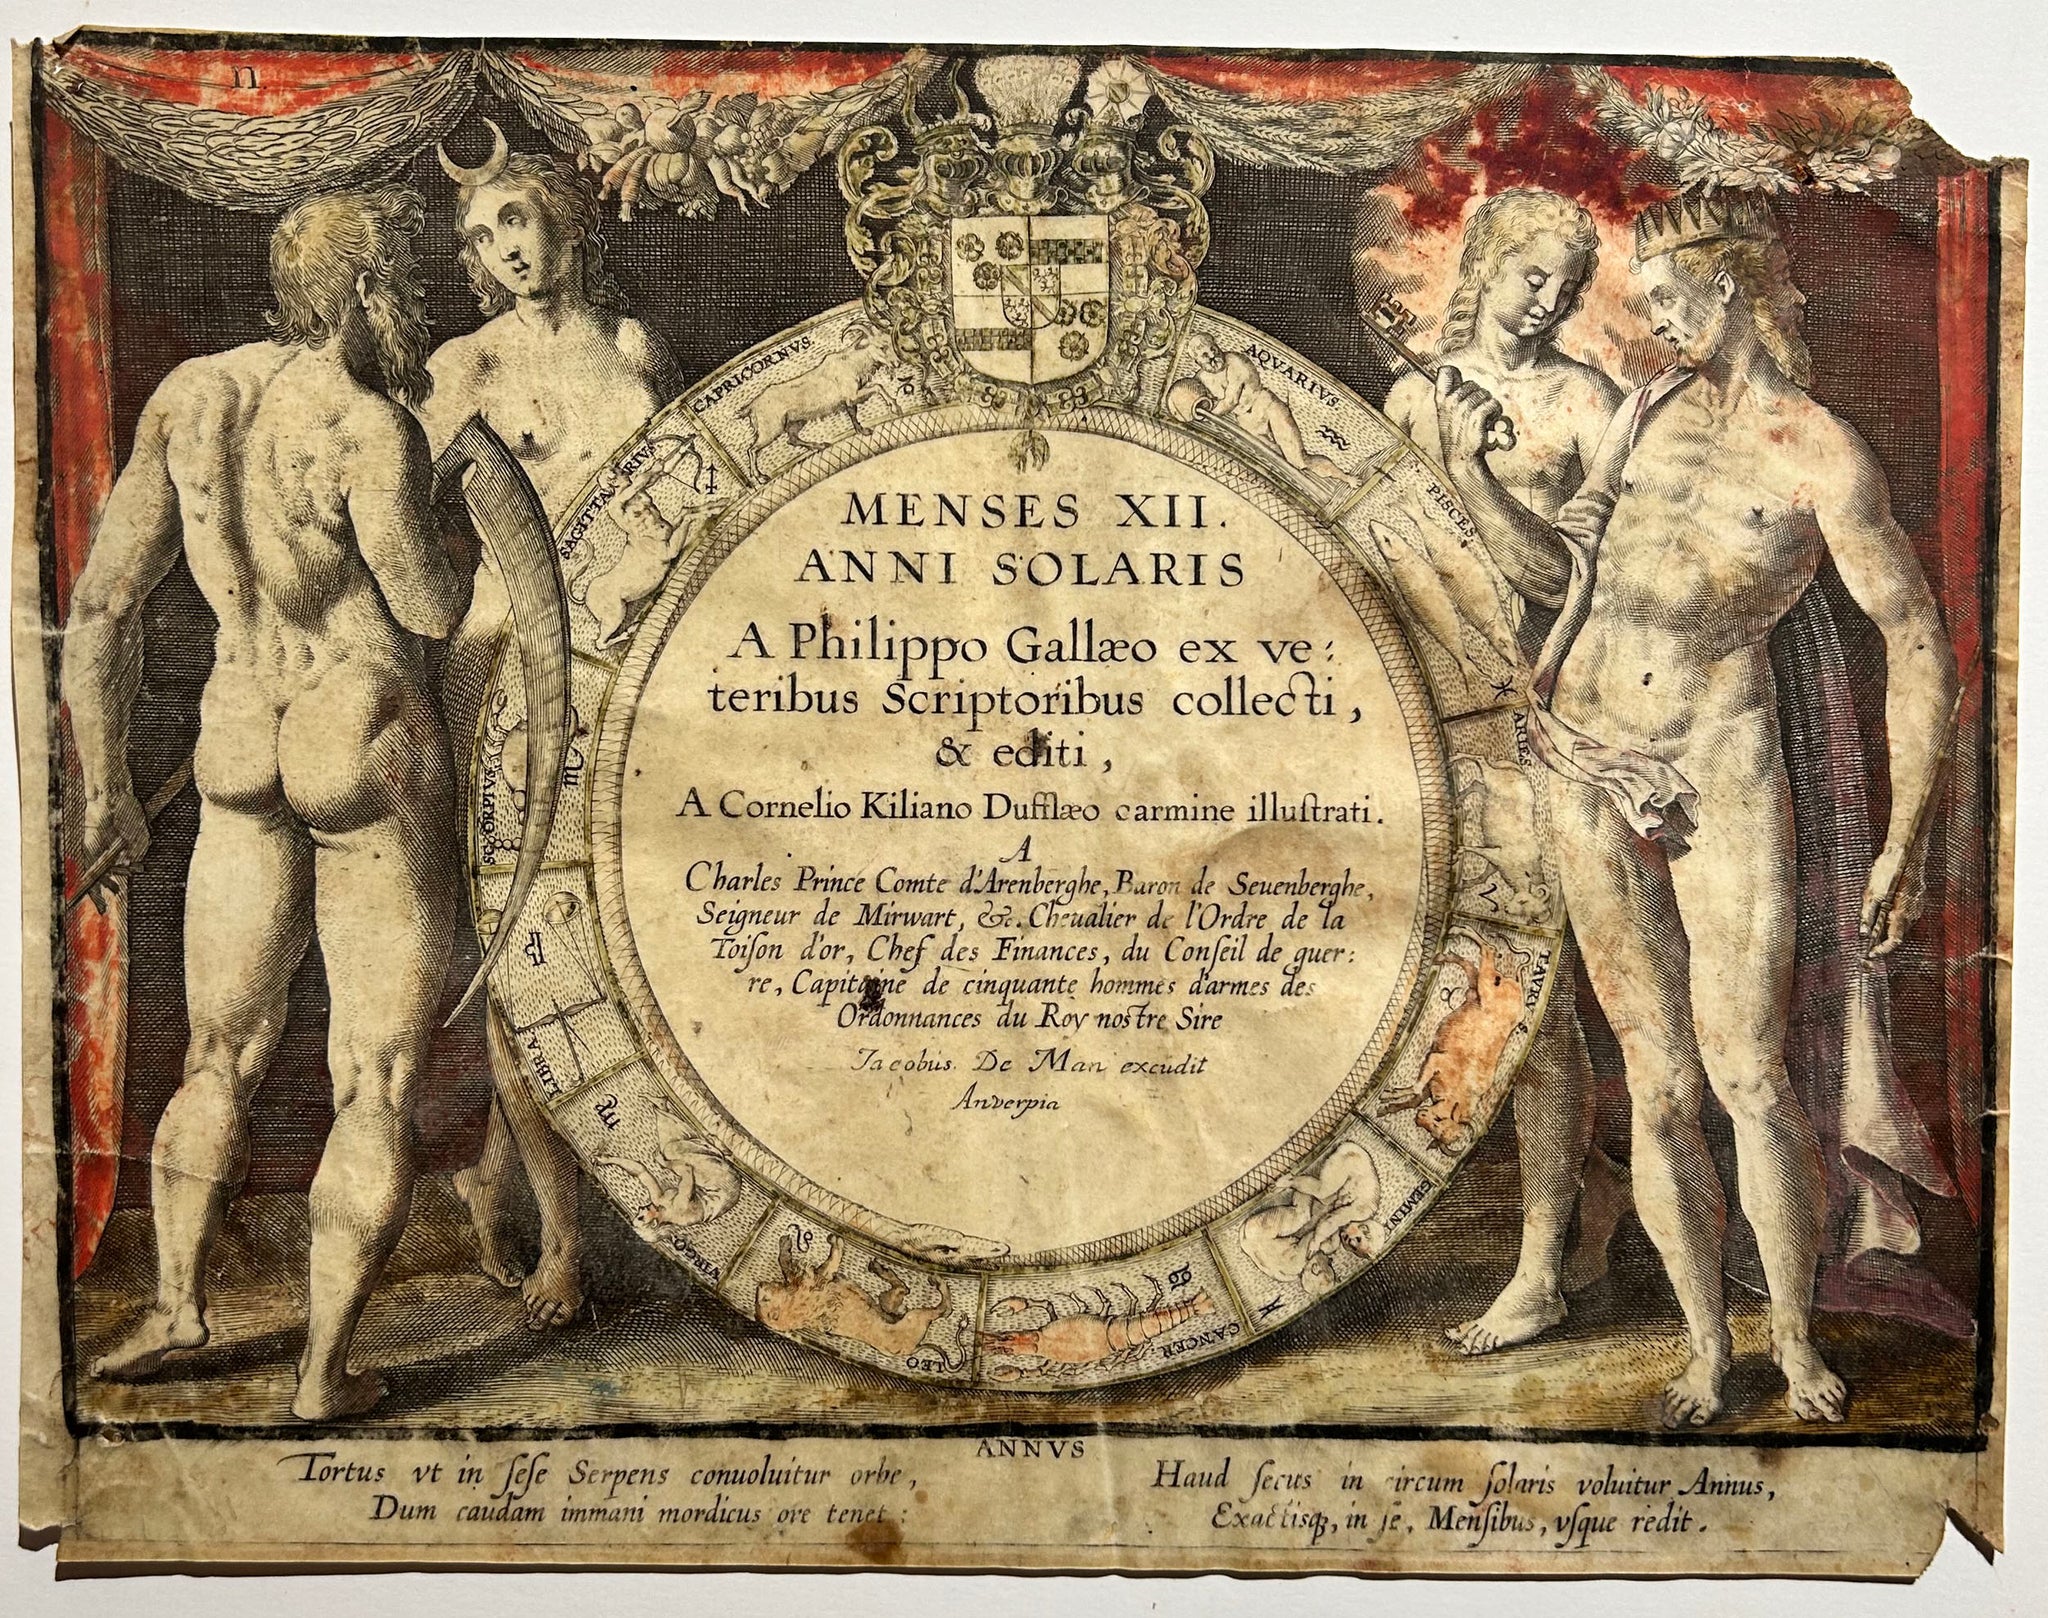 n.
CAPRICORNVS.
AQVARIVS.
SAGITTARIVS
PISCES.
ARIES
SCORPIVS
TAVRVS.
LIBRA
GEMINI
VIRGO.
LEO
CANCER
MENSES XII.
ANNI SOLARIS
A Philippo Gallæo ex ve:
teribus Scriptoribus collecti,
& editi,
A Cornelio Kiliano Dufflæo carmine illuſtrati.
A
Charles Prince Comte d'Arenberghe, Baron de Seuenberghe,
Seigneur de Mirwart, &c. Cheualier de l'Ordre de la
Toiſon d'or, Chef des Finances, du Conſeil de guer:
re, Capitaine de cinquante hommes d'armes des
Ordonnances du Roy nostre Sire
Jacobus De Man excudit
Anverpia
ANNVS
Tortus vt in ſeſe Serpens conuoluitur orbe,
Dum caudam immani mordicus ore tenet:
Haud ſecus in circum ſolaris voluitur Annus,
Exactisq;, in ſe, Menſibus, vſque redit.